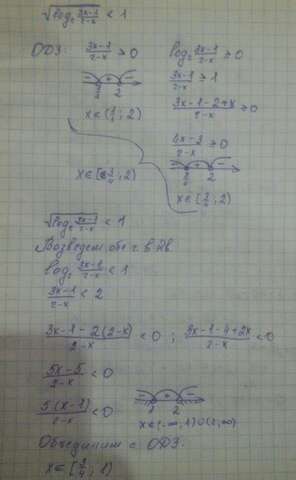 √(log₂ (3x-1)/(2-x)) < 1
ОДЗ: (3x-1)/(2-x) > 0
log₂ (3x-1)/(2-x) ≥ 0
(3x-1)/(2-x) ≥ 1
(3x-1-2+x)/(2-x) ≥ 0
x∈(1/3; 2)
(4x-3)/(2-x) ≥ 0
x∈[3/4; 2)
x∈[3/4; 2)
√(log₂ (3x-1)/(2-x)) < 1
Возведем обе ч. в кв.
log₂ (3x-1)/(2-x) < 1
(3x-1)/(2-x) < 2
(3x-1-2(2-x))/(2-x) < 0 ; (3x-1-4+2x)/(2-x) < 0
(5x-5)/(2-x) < 0
5(x-1)/(2-x) < 0
1 2
x∈(-∞; 1)∪(2; ∞)
Объединим с ОДЗ:
x∈[3/4; 1)